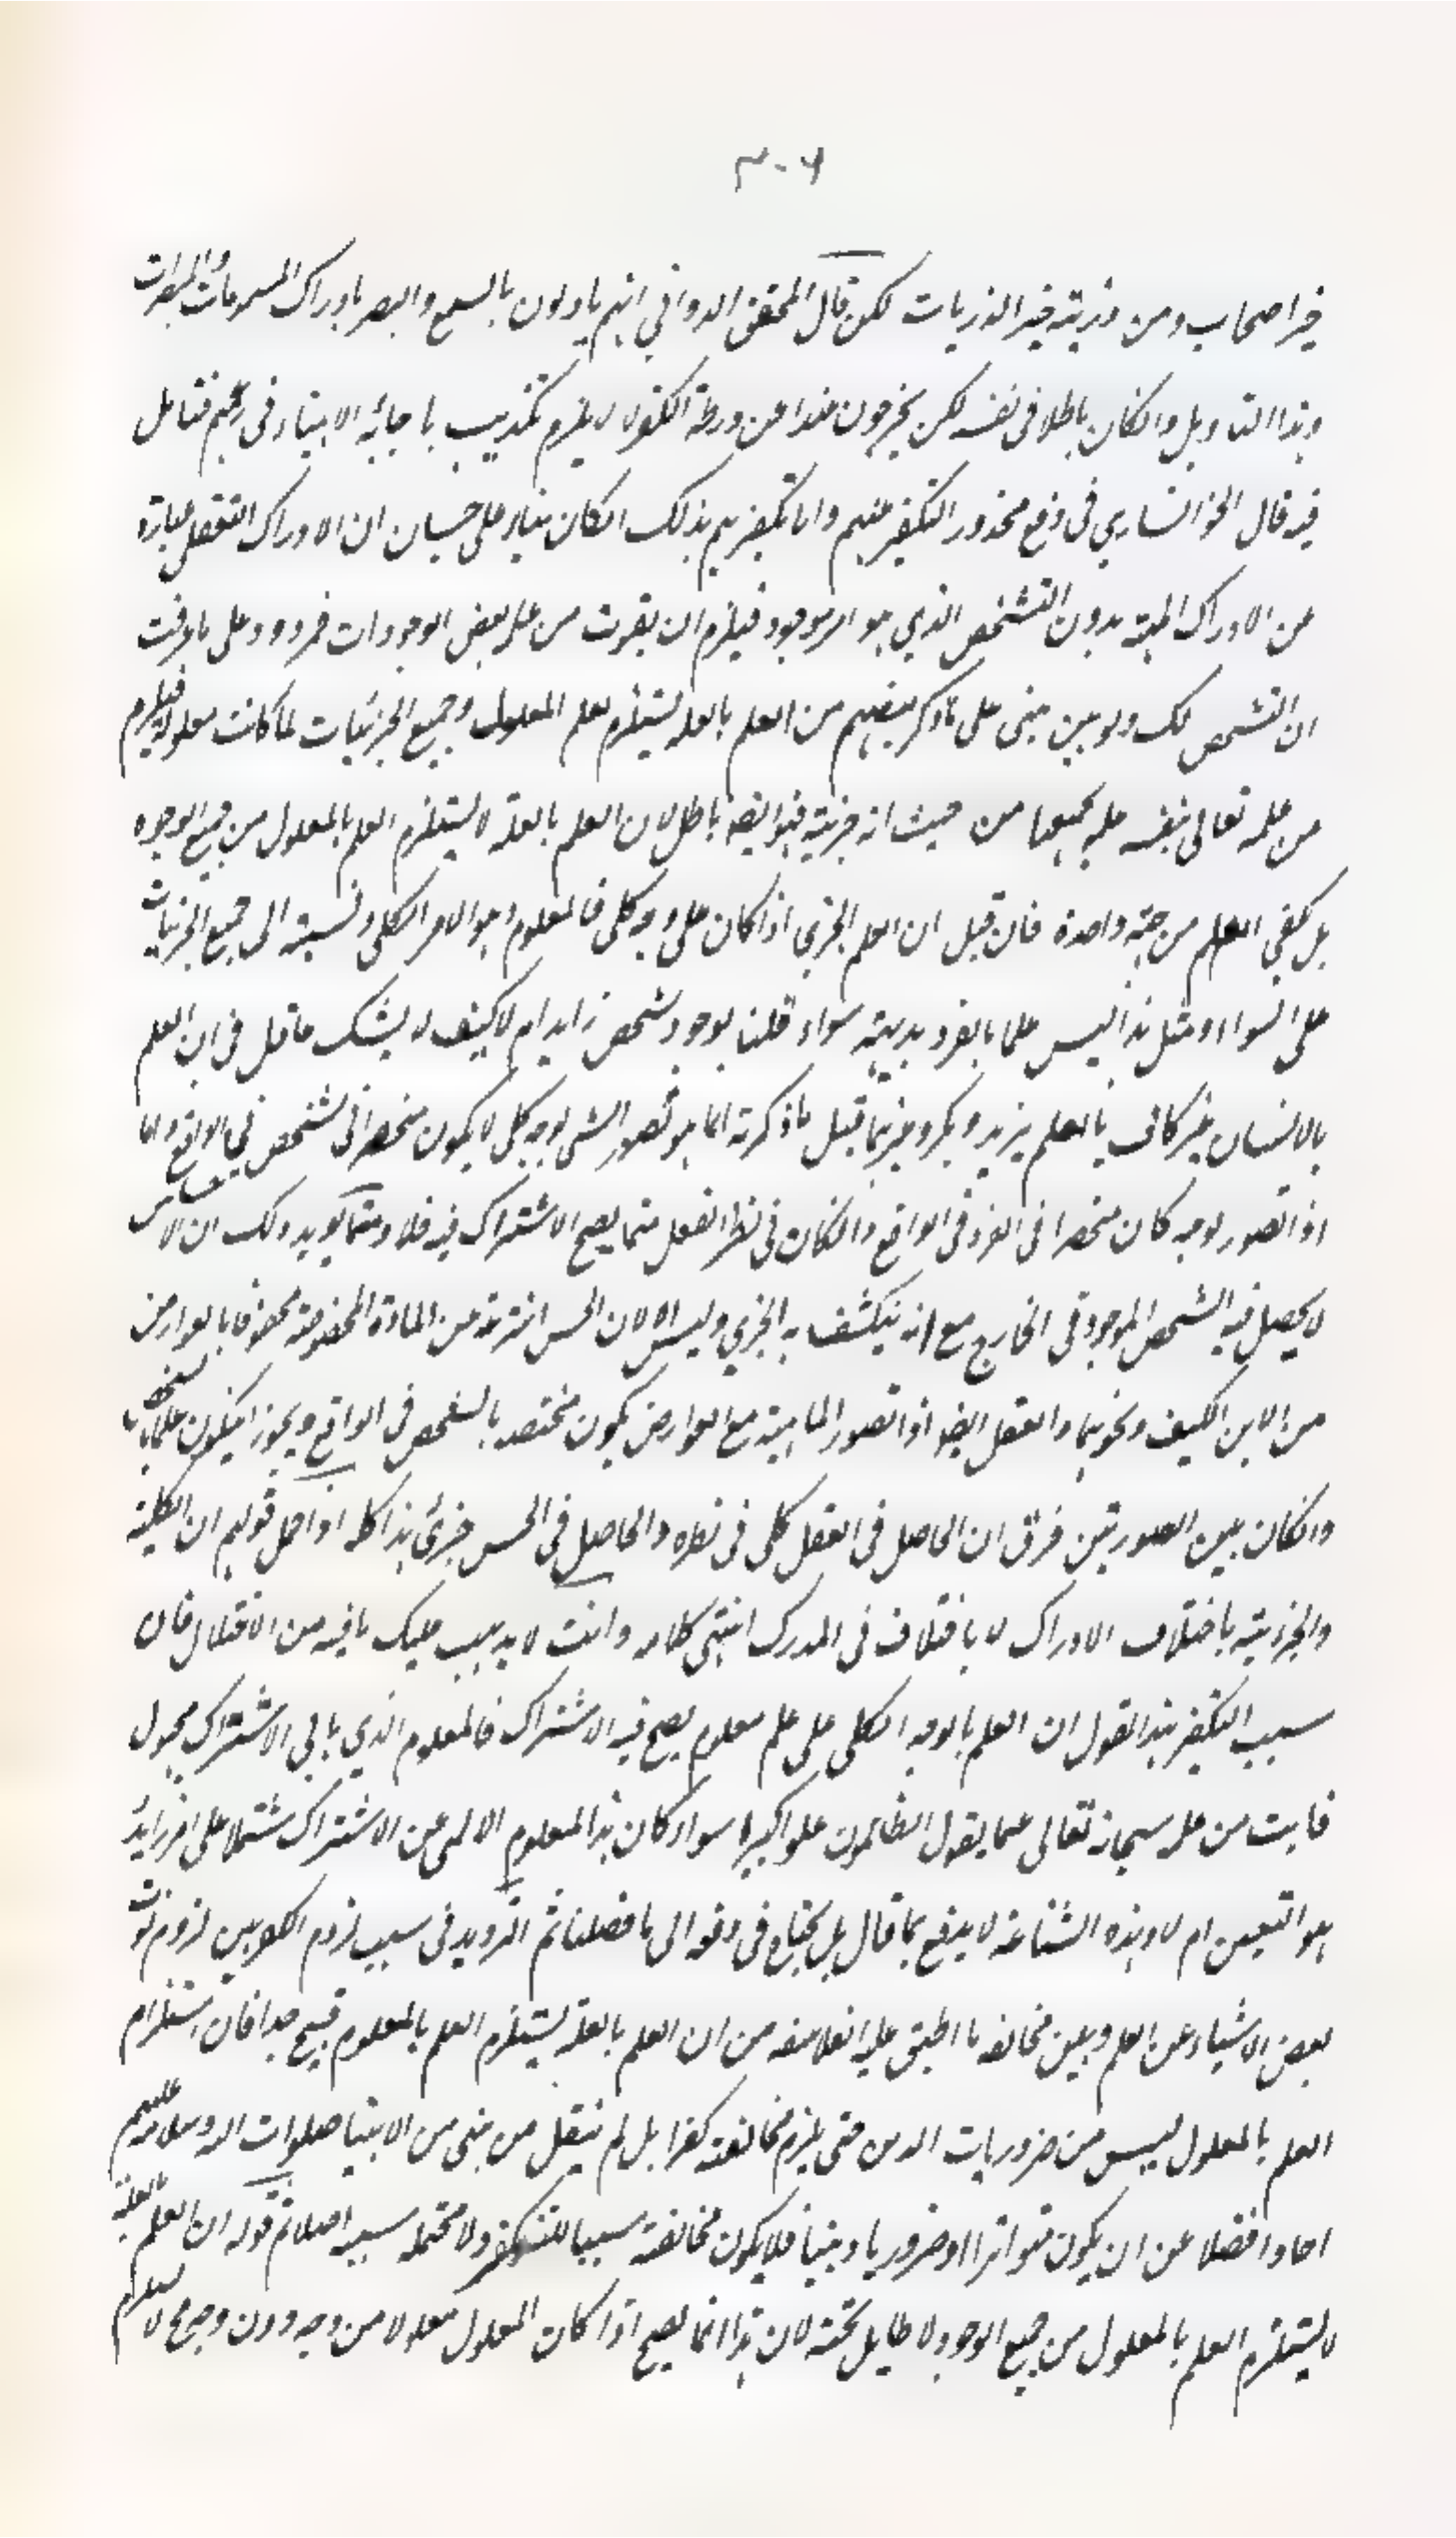 ٣٠٦
خير اصحاب ومن ذريته خير الذريات لكن قال المحقق الدواني انهم ياولون بالسمع والبصر بادراك المسموعات والمبصرات
وهذا التاويل وانكان باطلا في نفسه لكن يخرجون عن ورطة الكفر لا يلزم تكذيب ما جائه الانبياء في زعمهم فتامل
فيه قال الخوانساري في دفع محذور التكفير عنهم واما تكفيرهم بذلك انكان بناء على حسبان ان الادراك التعقل عبارة
عن الادراك المهية بدون التشخص الذي هو امر موجود فيلزم ان يفوت من علمه بعض الموجودات فمردود على ما عرفت
ان التشخص لك ولو بين مبنى على ما ذكر بعضهم من العلم بالعلة يستلزم لعلم المعلول وجميع الجزئيات لما كانت معلولة فيلزم
من علمه تعالى بنفسه علمه بجميعها من حيث انه جزئية فهو ايضا باطل لان العلم بالعلة لا يستلزم العلم بالمعلول من جميع الوجوه
بل يكفي العلم من جهة واحدة فان قيل ان العلم الجزئي اذا كان على وجه كلي فالمعلوم هو الامر الكلي ونسبته الى جميع الجزئيات
على السواء ومثل هذا ليس علما بالفرد بديهته سواء قلنا بوجود تشخص زايد ام لا كيف لا يشك عاقل في ان العلم
بالانسان غير كاف بالعلم بزيد وبكر وغيرهما قيل ما ذكرته انما هو تصور الشي بوجه كلي لا يكون منحصرا في شخص في الواقع واما
اذا تصور بوجه كان منحصرا في الفرد في الواقع وانكان في نظر العقل مما يصح الاشتراك فيه فلا ومما يويد ذلك ان الاحساس
لا يحصل فيه الشخص الموجود في الخارج مع انه ينكشف به الجزئي وليس الا لان الحس انتزعه من المادة المخصوصة محفوفا بالعوارض
من الاين الكيف ونحوهما والعقل ايضا اذا تصور الماهية مع العوارض يكون مختصه بالشخص في الواقع ويجوز ان يكون علما بالشخص
وانكان بين الصورتين فرق ان الحاصل في العقل كلي في نظره والحاصل في الحس جزئي هذا كله اذا حمل قولهم ان الكلية
والجزئية باختلاف الادراك لا باختلاف في المدرك انتهى كلامه وانت لا يذهب عليك ما فيه من الاختلال فان
سبب التكفير بهذا القول ان العلم بالوجه الكلي على علم معلوم يصح فيه الاشتراك فالمعلوم الذي يابى الاشتراك مجهول
فايت من علمه سبحانه تعالى عما يقول الظالمون علوا كبيرا سواء كان هذا المعلوم الابي عن الاشتراك مشتملا على امر زايد
هو التعيين ام لا وهذه الشناعة لا يدفع بما قال بل يحتاج في دفعه الى ما فصلنا ثم الترديد في سبب لزوم الكفر بين لزوم فوت
بعض الاشياء عن العلم وبين مخالفة ما اطبق عليه الفلاسفه من ان العلم بالعلة يستلزم العلم بالمعلوم قبيح جدا فان استلزام
العلم بالمعلول ليس من ضروريات الدين حتى يلزم مخالفته كفرا بل لم ينقل من نبي من الانبيا صلوات الله وسلامه عليهم
احادا فضلا عن ان يكون متواترا او ضروريا دينيا فلا يكون مخالفته سببا للتكفير ولا محتمله سببه اصلا ثم قوله ان العلم بالعلة
لا يستلزم العلم بالمعلول من جميع الوجوه لا طايل تحته لان هذا انما يصح اذا كان المعلول معلولا من وجه دون وجه